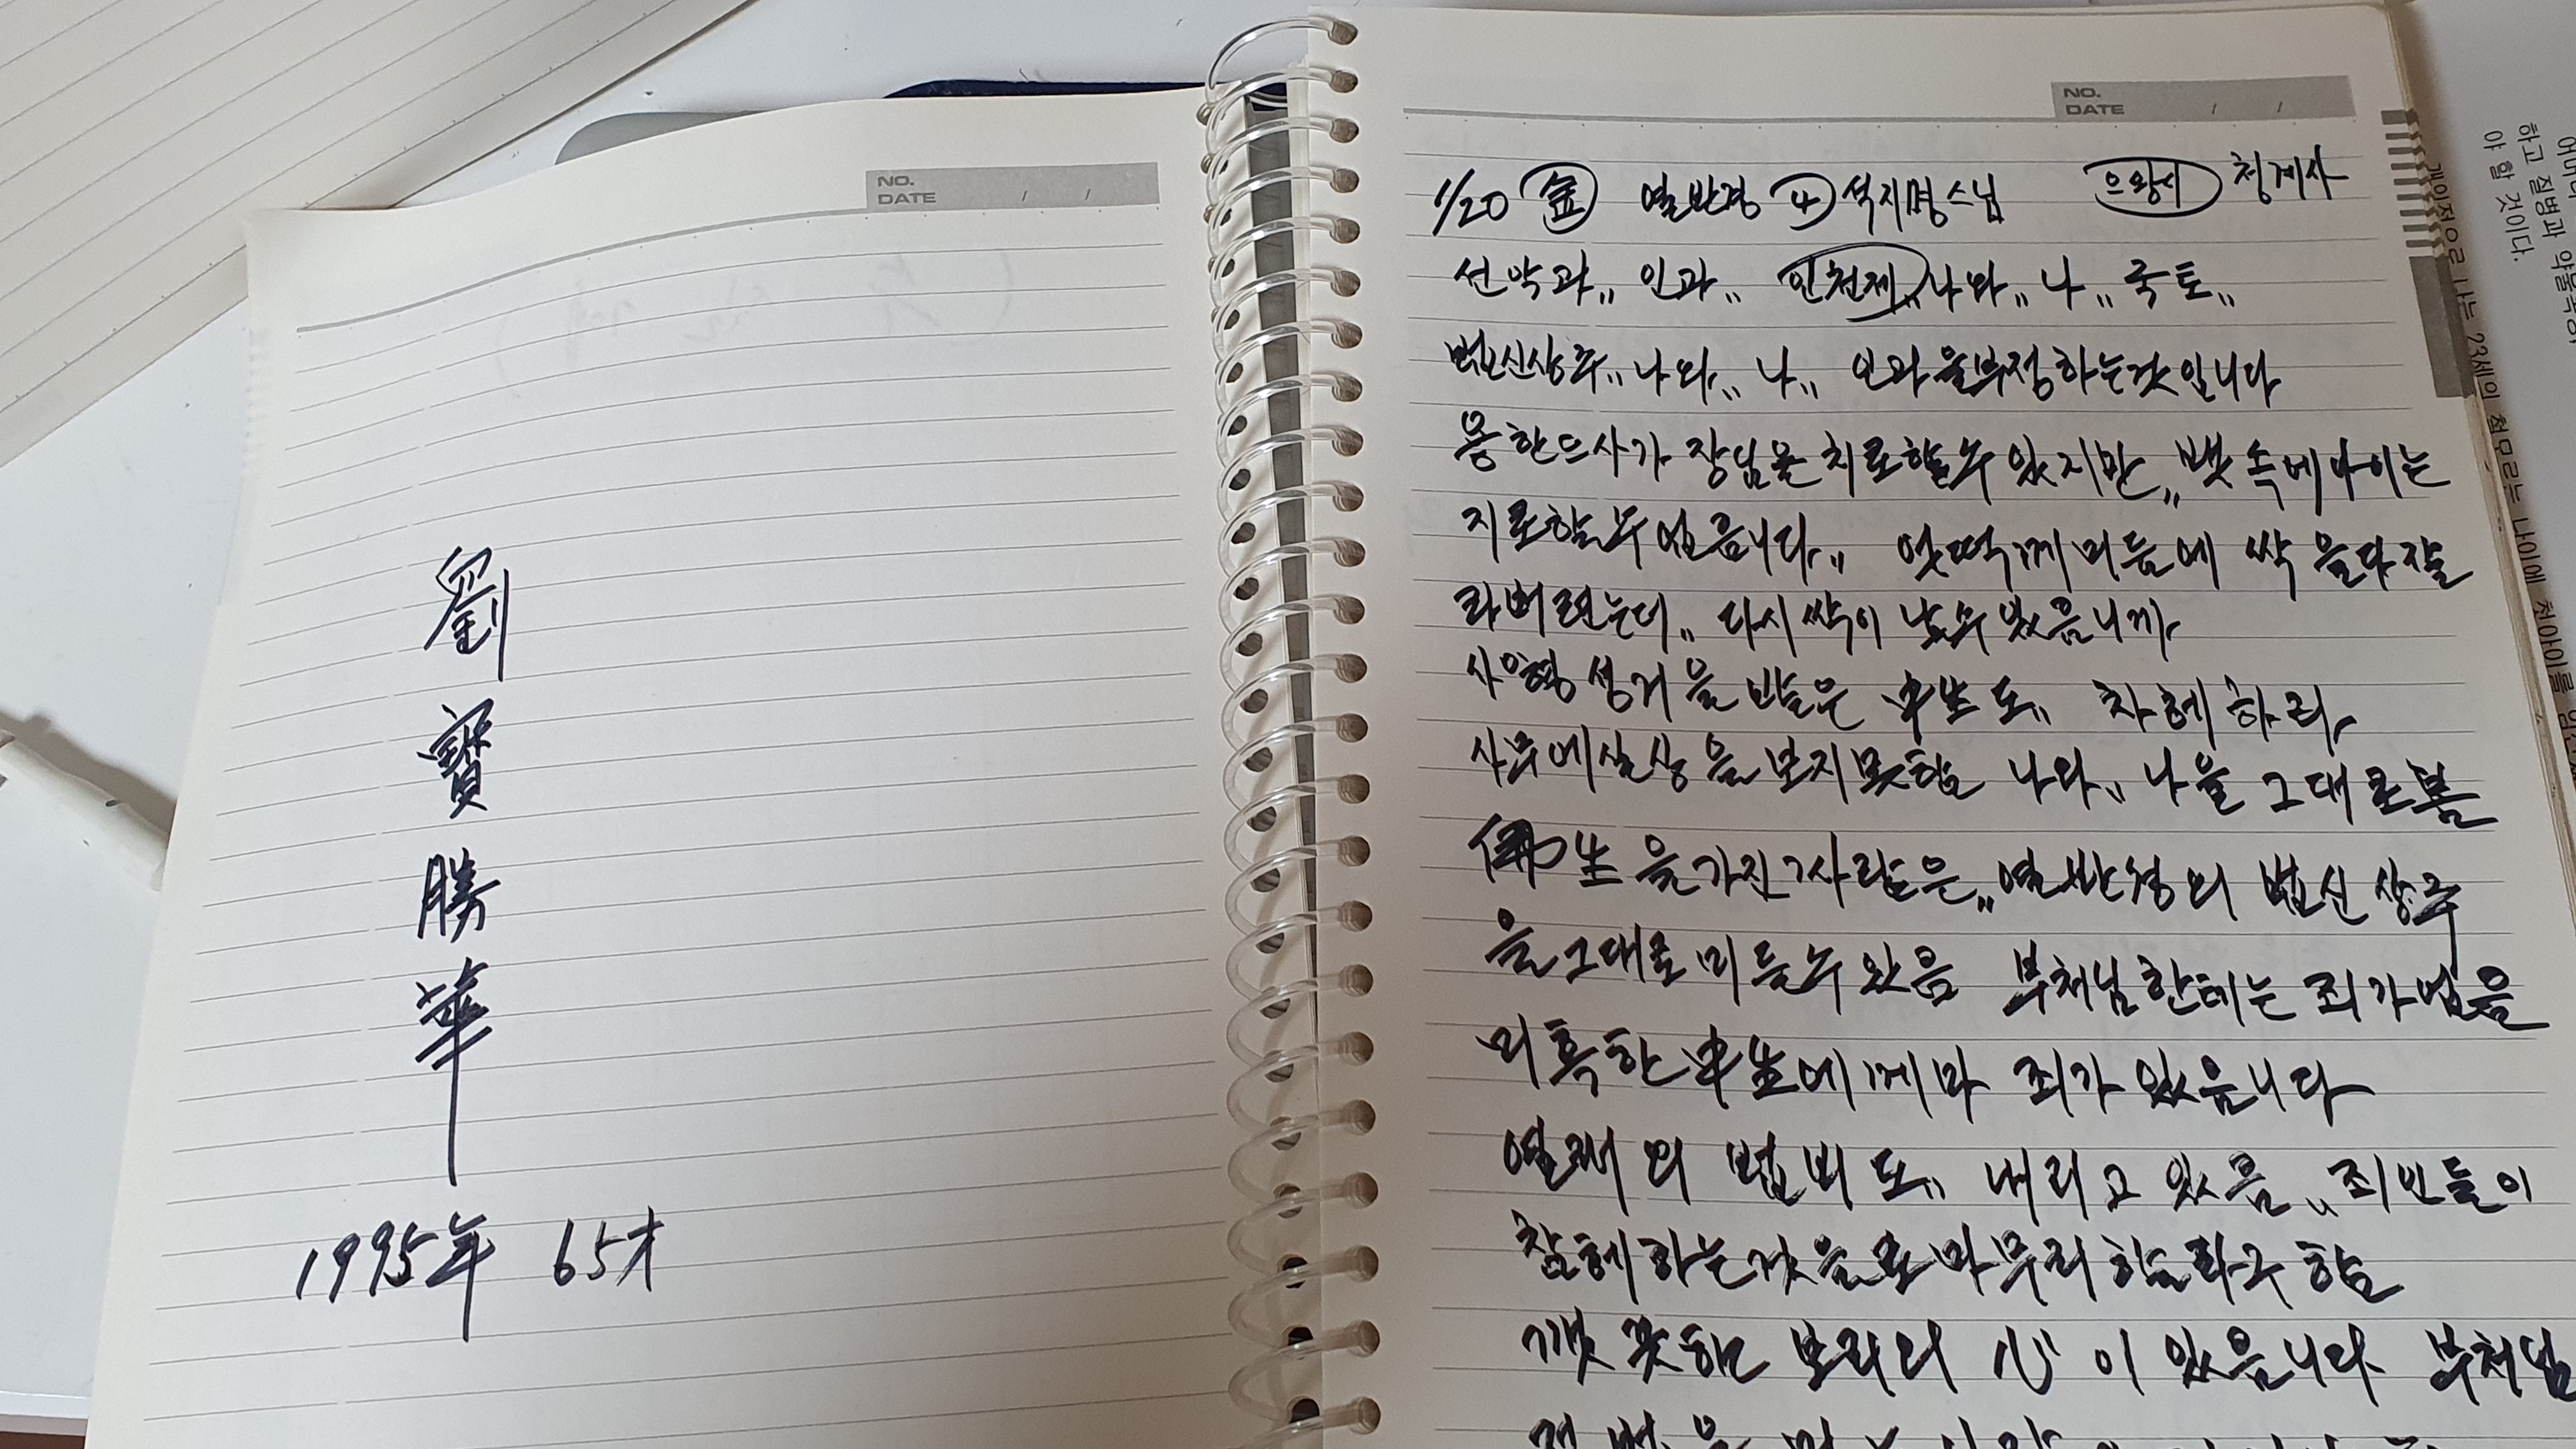 NO.
DATE / /
劉
寶
勝
華
1995年 65才
NO.
DATE / /
1/20 金 열반경 4 석지명스님 으왕시 청계사
선악과,, 인과,, 인천제,, 나와,, 나,, 국토,,
법신상주,, 나와,, 나,, 인과을부정하는것입니다
용한으사가 장님을 치료할수 있지만,, 뱃속에 는
치료할수 없음니다,, 엇떡게 미듬에 싹을다잘
라버렸는데,, 다시싹이 날수 있음니까
성거을 받을은 中生도,, 차헤하리
사무에실상을 보지못함 나와,, 나을 그대로봄
佛生을가진 사람은,, 열반경의 법신상주
을그대로 미들수 있음 부처님한테는 죄가법음
미혹한 中生에게마 죄가 있음니다
열래의 법비도,, 내리고 있음,, 죄인들이
참헤하는것을로 마무리 할라구 함
깻끗한 보리의 心이 있음니다 부처님
하고 질병과 약물
야 할 것이다.
개인적으로 나는 23세의 첨부르는 나이에 첫아이를